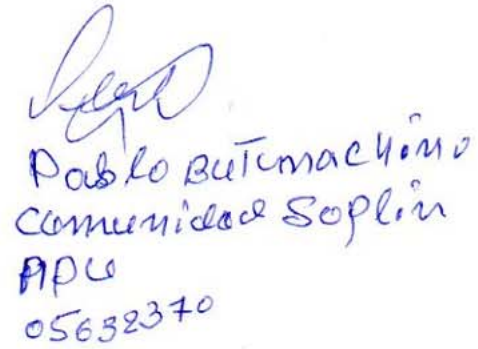 Pablo Butuna chino
Comunidad Soplin
APU
05632370